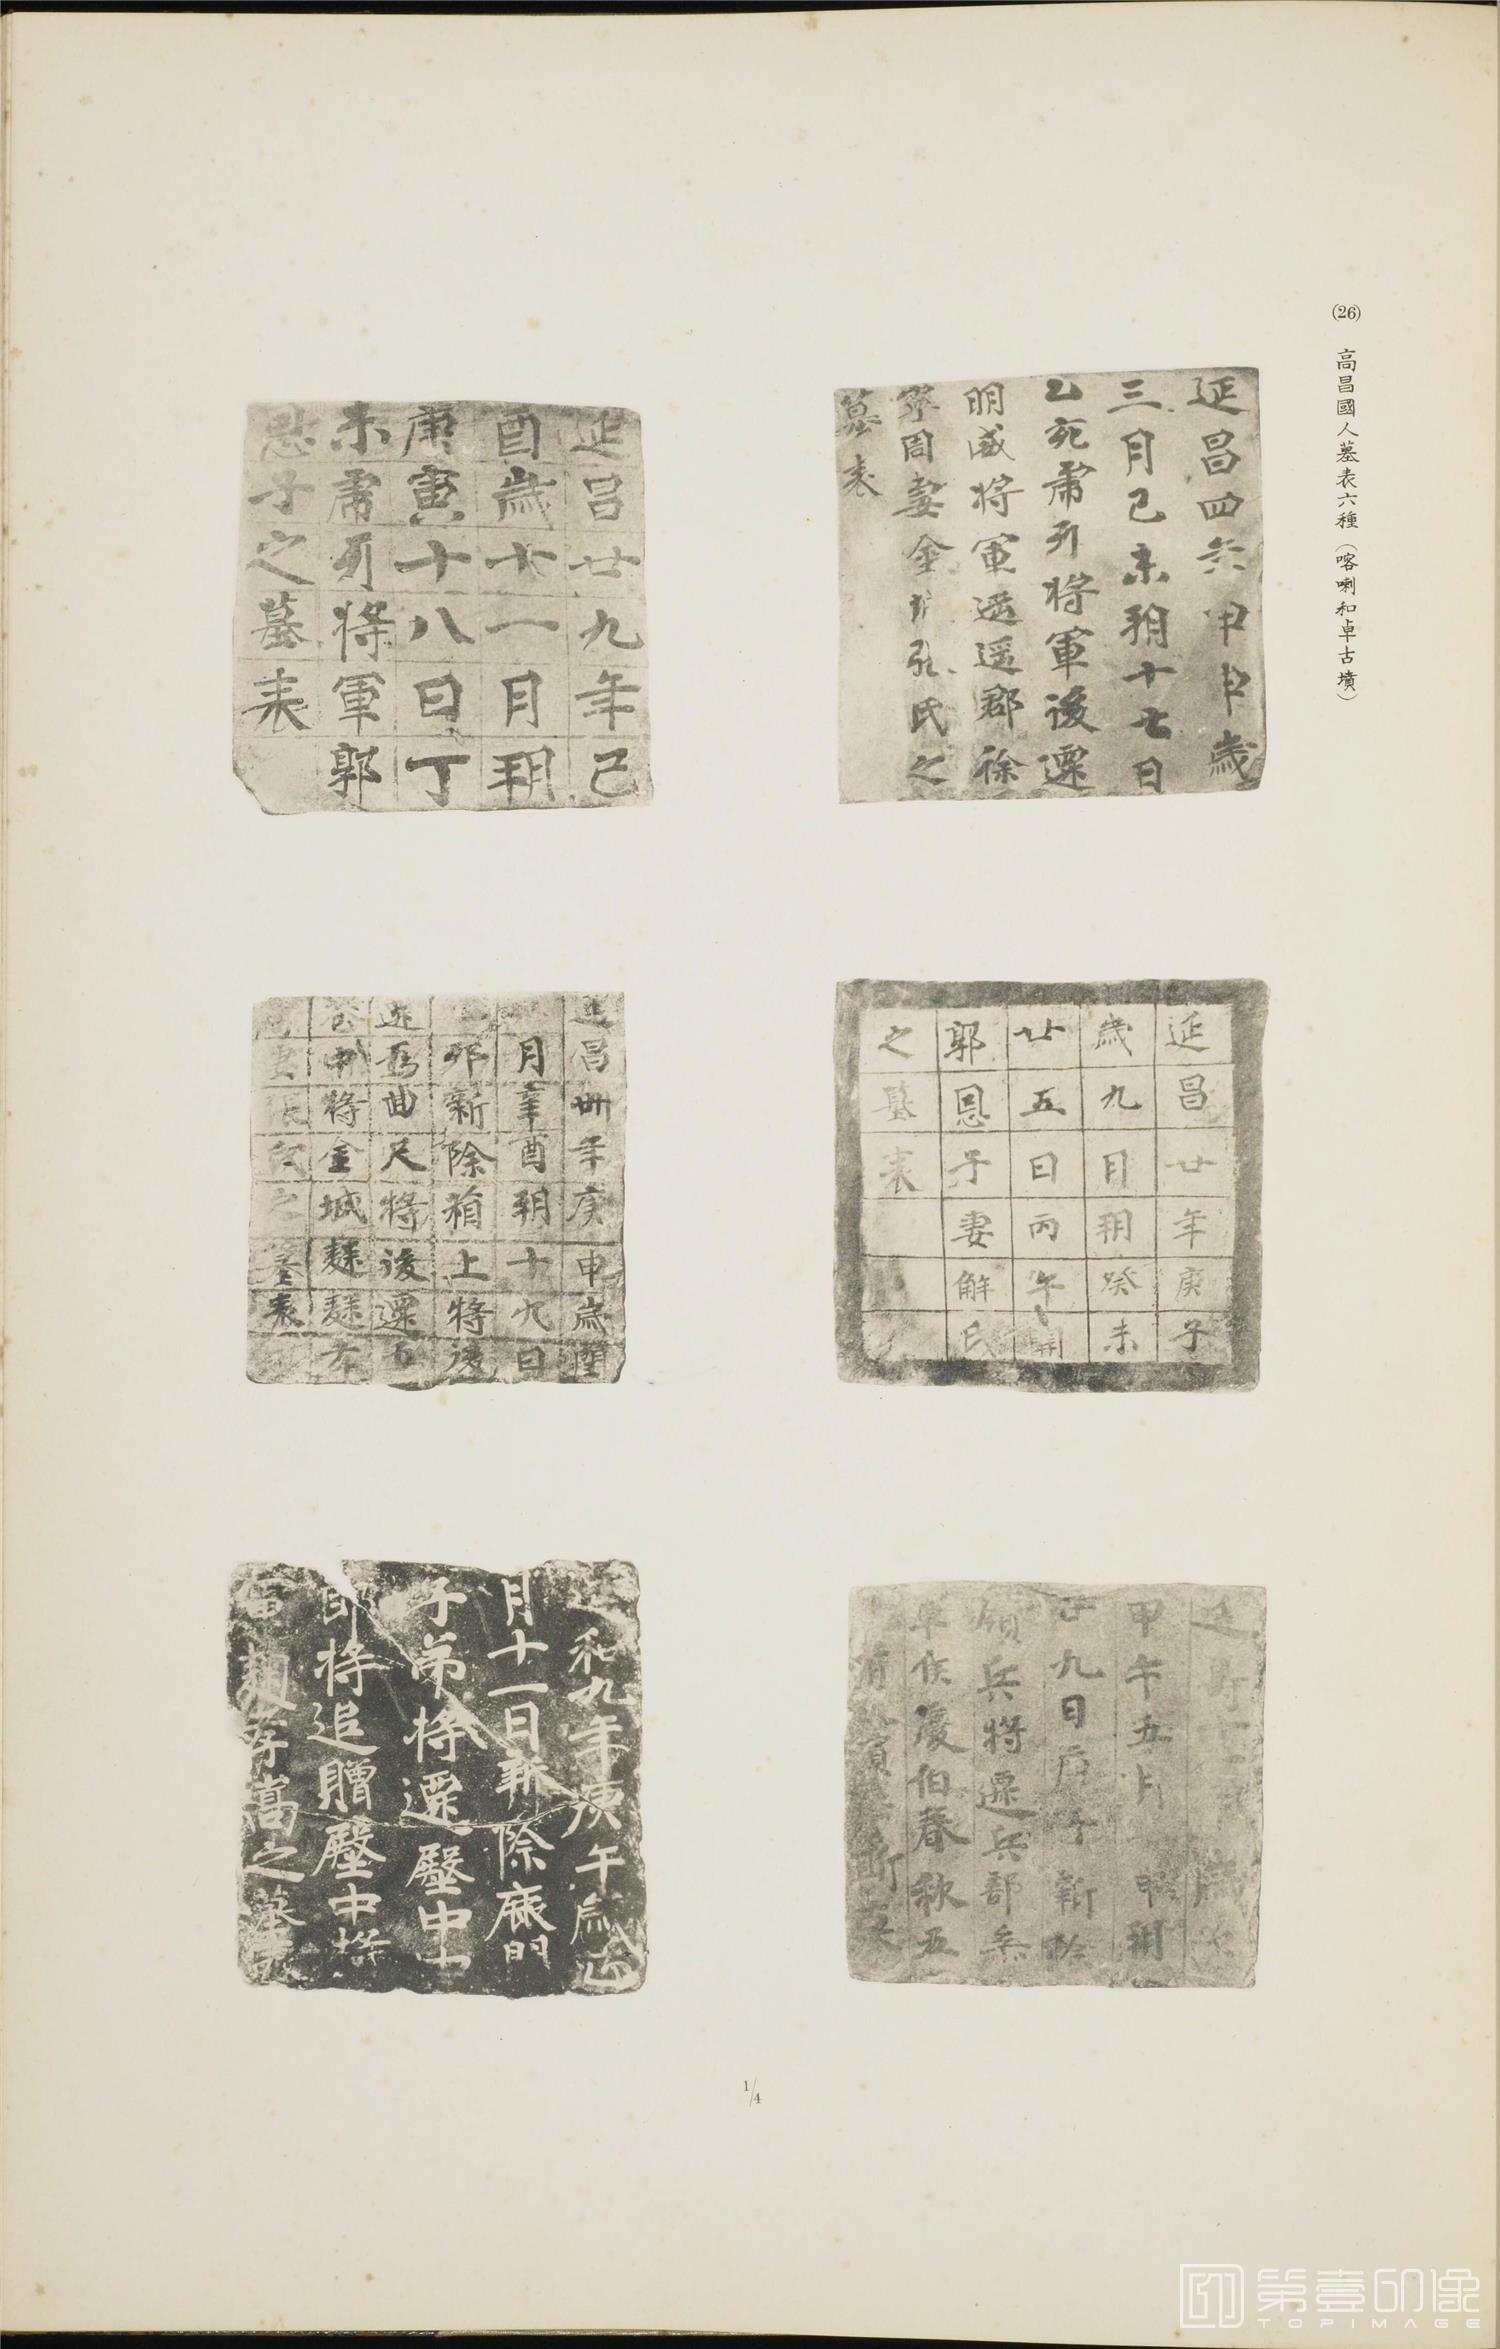 (26) 高昌國人墓表六種（喀喇和卓古墳）
延昌四年甲申歲
三月己未朔十七日
乙亥虎牙將軍後遷
明威將軍遥遥郡徐
寧周妻金城張氏之
墓表
延昌廿九年己
酉歲十一月朔
庚寅十八日丁
未虎牙將軍郭
恩子之墓表
延昌廿年庚子
歲九月朔癸未
廿五日丙午
郭恩子妻解氏
之墓表
延昌卌年庚申歲閏
月辛酉朔十九日
卯新除箱上將後
遷爲曲尺將後遷
中將金城麹
妻張氏之墓表
延 歲
甲午五月 朔
廿九日 新除
領兵將遷兵部參
軍侯慶伯春秋五
和九年庚午歲正
月十一日新除鹿門
子弟將遷殿中中
郎將追贈殿中將
麹孝嵩之墓表
1/4
第壹印像
TOPIMAGE